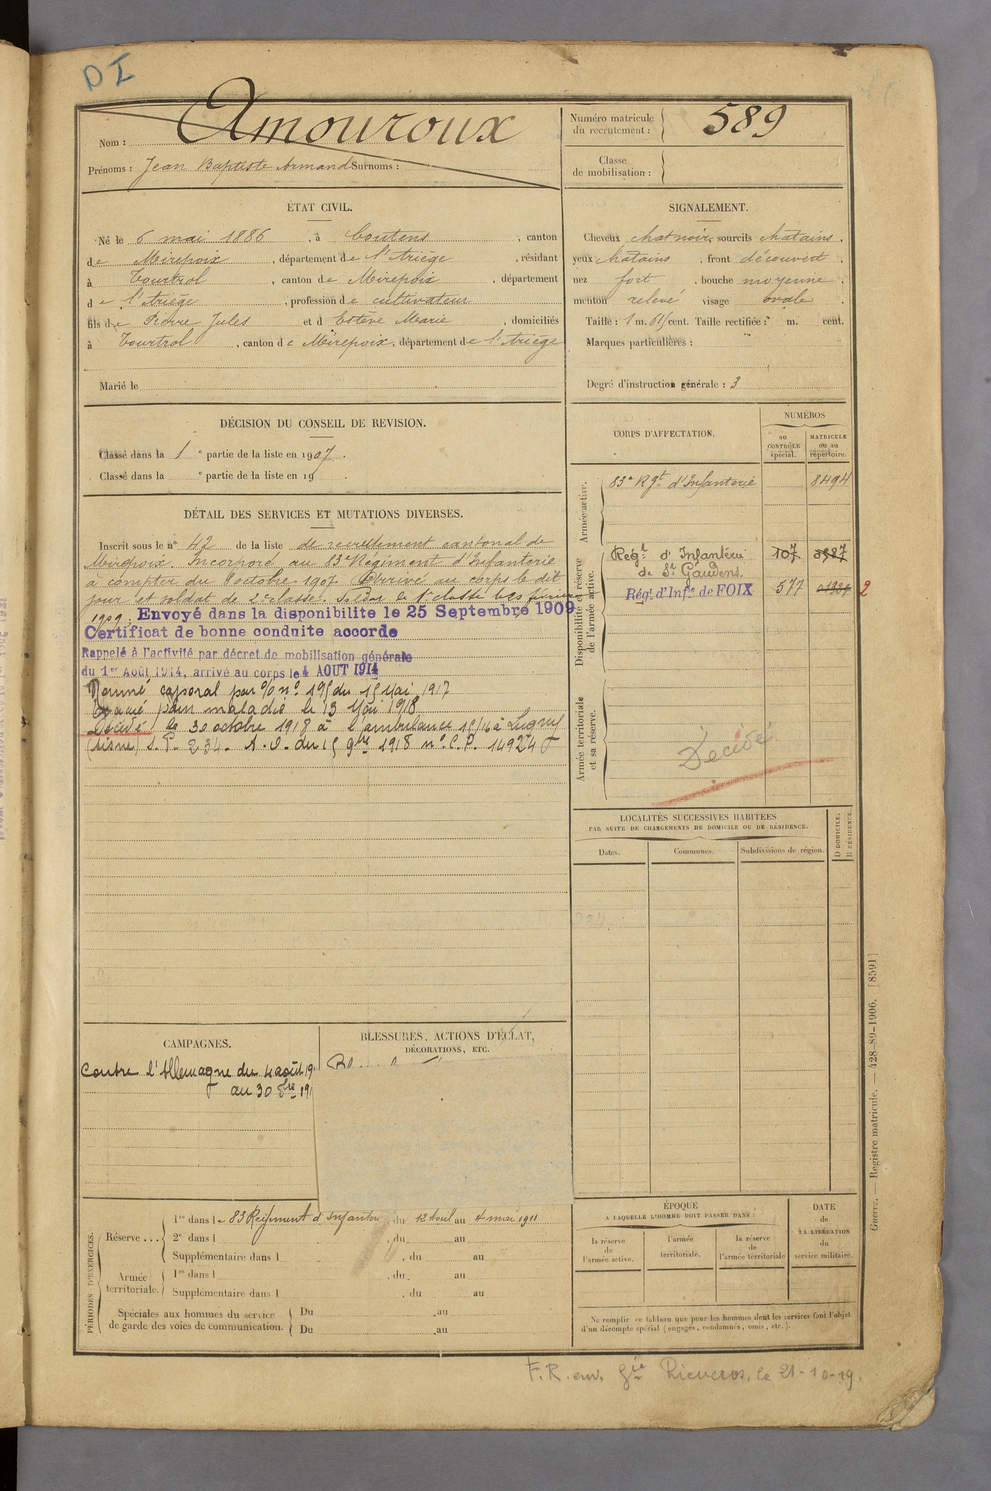 DI
Nom : Amouroux
Prénoms : Jean Baptiste Armand Surnoms :
Numéro matricule
du recrutement : 589
Classe
de mobilisation :
ÉTAT CIVIL.
Né le 6 mai 1886, à Coutens, canton
de Mirepoix, département de l'Ariège, résidant
à Tourtrol, canton de Mirepoix, département
de l'Ariège, profession de cultivateur
fils de Pierre Jules et d Estève Marie, domiciliés
à Tourtrol, canton de Mirepoix, département de l'Ariège
Marié le
SIGNALEMENT.
Cheveux chat noir, sourcils chatains,
yeux chatains, front découvert,
nez fort, bouche moyenne,
menton relevé visage ovale
Taille : 1 m. cent. Taille rectifiée : m. cent.
Marques particulières :
Degré d'instruction générale : 3
DÉCISION DU CONSEIL DE REVISION.
Classé dans la 1e partie de la liste en 1907.
Classé dans la e partie de la liste en 19 .
DÉTAIL DES SERVICES ET MUTATIONS DIVERSES.
Inscrit sous le n° 42 de la liste de recrutement cantonal de
Mirepoix. Incorporé au 83e Régiment d'Infanterie
à compter du 8 octobre 1907. Arrivé au corps le dit
jour et soldat de 2e classe. Soldat de 1e classe le
1909. Envoyé dans la disponibilite le 25 Septembre 1909
Certificat de bonne conduite accorde
Rappelé à l'activité par décret de mobilisation générale
du 1er Août 1914, arrivé au corps le 4 AOUT 1914
Nommé caporal par % n° 195 du 15 Mai 1917
Evacué pour maladie le 13 Mai 1918
Décédé le 30 octobre 1918 à l'ambulance 15/16 à Lugny
(Aisne) S.P. 234. A.O. du 15 9bre 1918 n° C.P. 14924
CORPS D'AFFECTATION.
NUMÉROS
au
CONTRÔLE
spécial.
MATRICULE
ou au
répertoire.
Armée active.
83e Rgt d'Infanterie 8494
Disponibilité et réserve
de l'armée active.
Régt d'Infanterie 107
de St Gaudens.
Régt d'Infie de FOIX 577 2
Armée territoriale
et sa réserve.
Décédé
LOCALITÉS SUCCESSIVES HABITÉES
PAR SUITE DE CHANGEMENTS DE DOMICILE OU DE RÉSIDENCE.
Dates. Communes. Subdivisions de région. D DOMICILE. R RÉSIDENCE.
CAMPAGNES.
Contre l'Allemagne du 4 août 19
au 30 8bre 19
BLESSURES, ACTIONS D'ÉCLAT,
DÉCORATIONS, ETC.
PÉRIODES D'EXERCICES.
Réserve ...
1re dans le 83 Régiment d'Infanterie du 12 avril au 4 mai 1911
2e dans l , du au
Supplémentaire dans l , du au
Armée
territoriale.
1re dans l , du au
Supplémentaire dans l , du au
Spéciales aux hommes du service
de garde des voies de communication.
Du , au
Du , au
ÉPOQUE
À LAQUELLE L'HOMME DOIT PASSER DANS :
la réserve
de
l'armée active.
l'armée
territoriale.
la réserve
de
l'armée territoriale
DATE
de
LA LIBÉRATION
du
service militaire.
Ne remplir ce tableau que pour les hommes dont les services font l'objet
d'un décompte spécial (engagés, condamnés, omis, etc.).
Guerre. — Registre matricule. — 428-89-1906. [8591]
F.R. env. gie Rieucros, le 21-10-19.